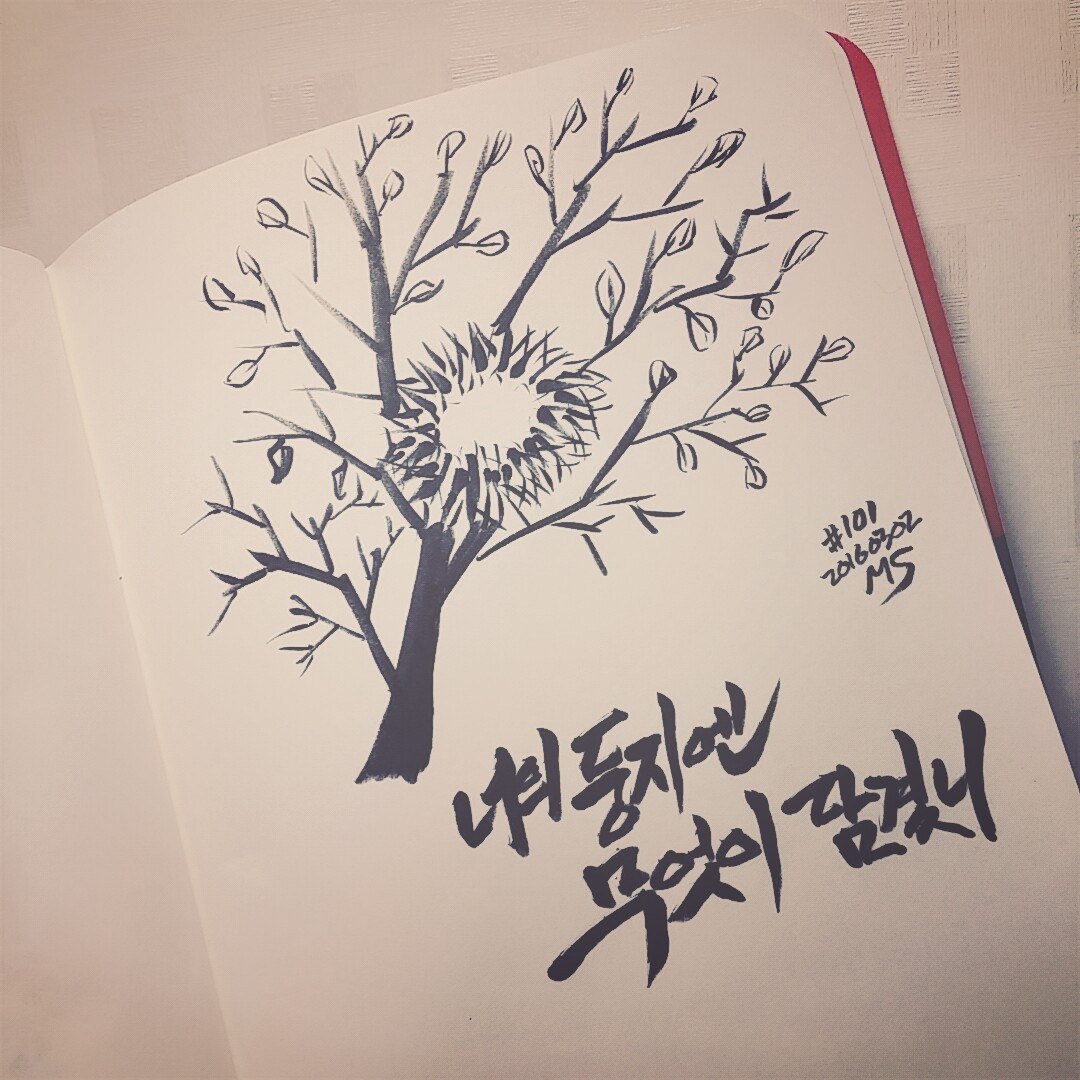 #101
20160302
MS
너의 둥지엔
무엇이 담겼니